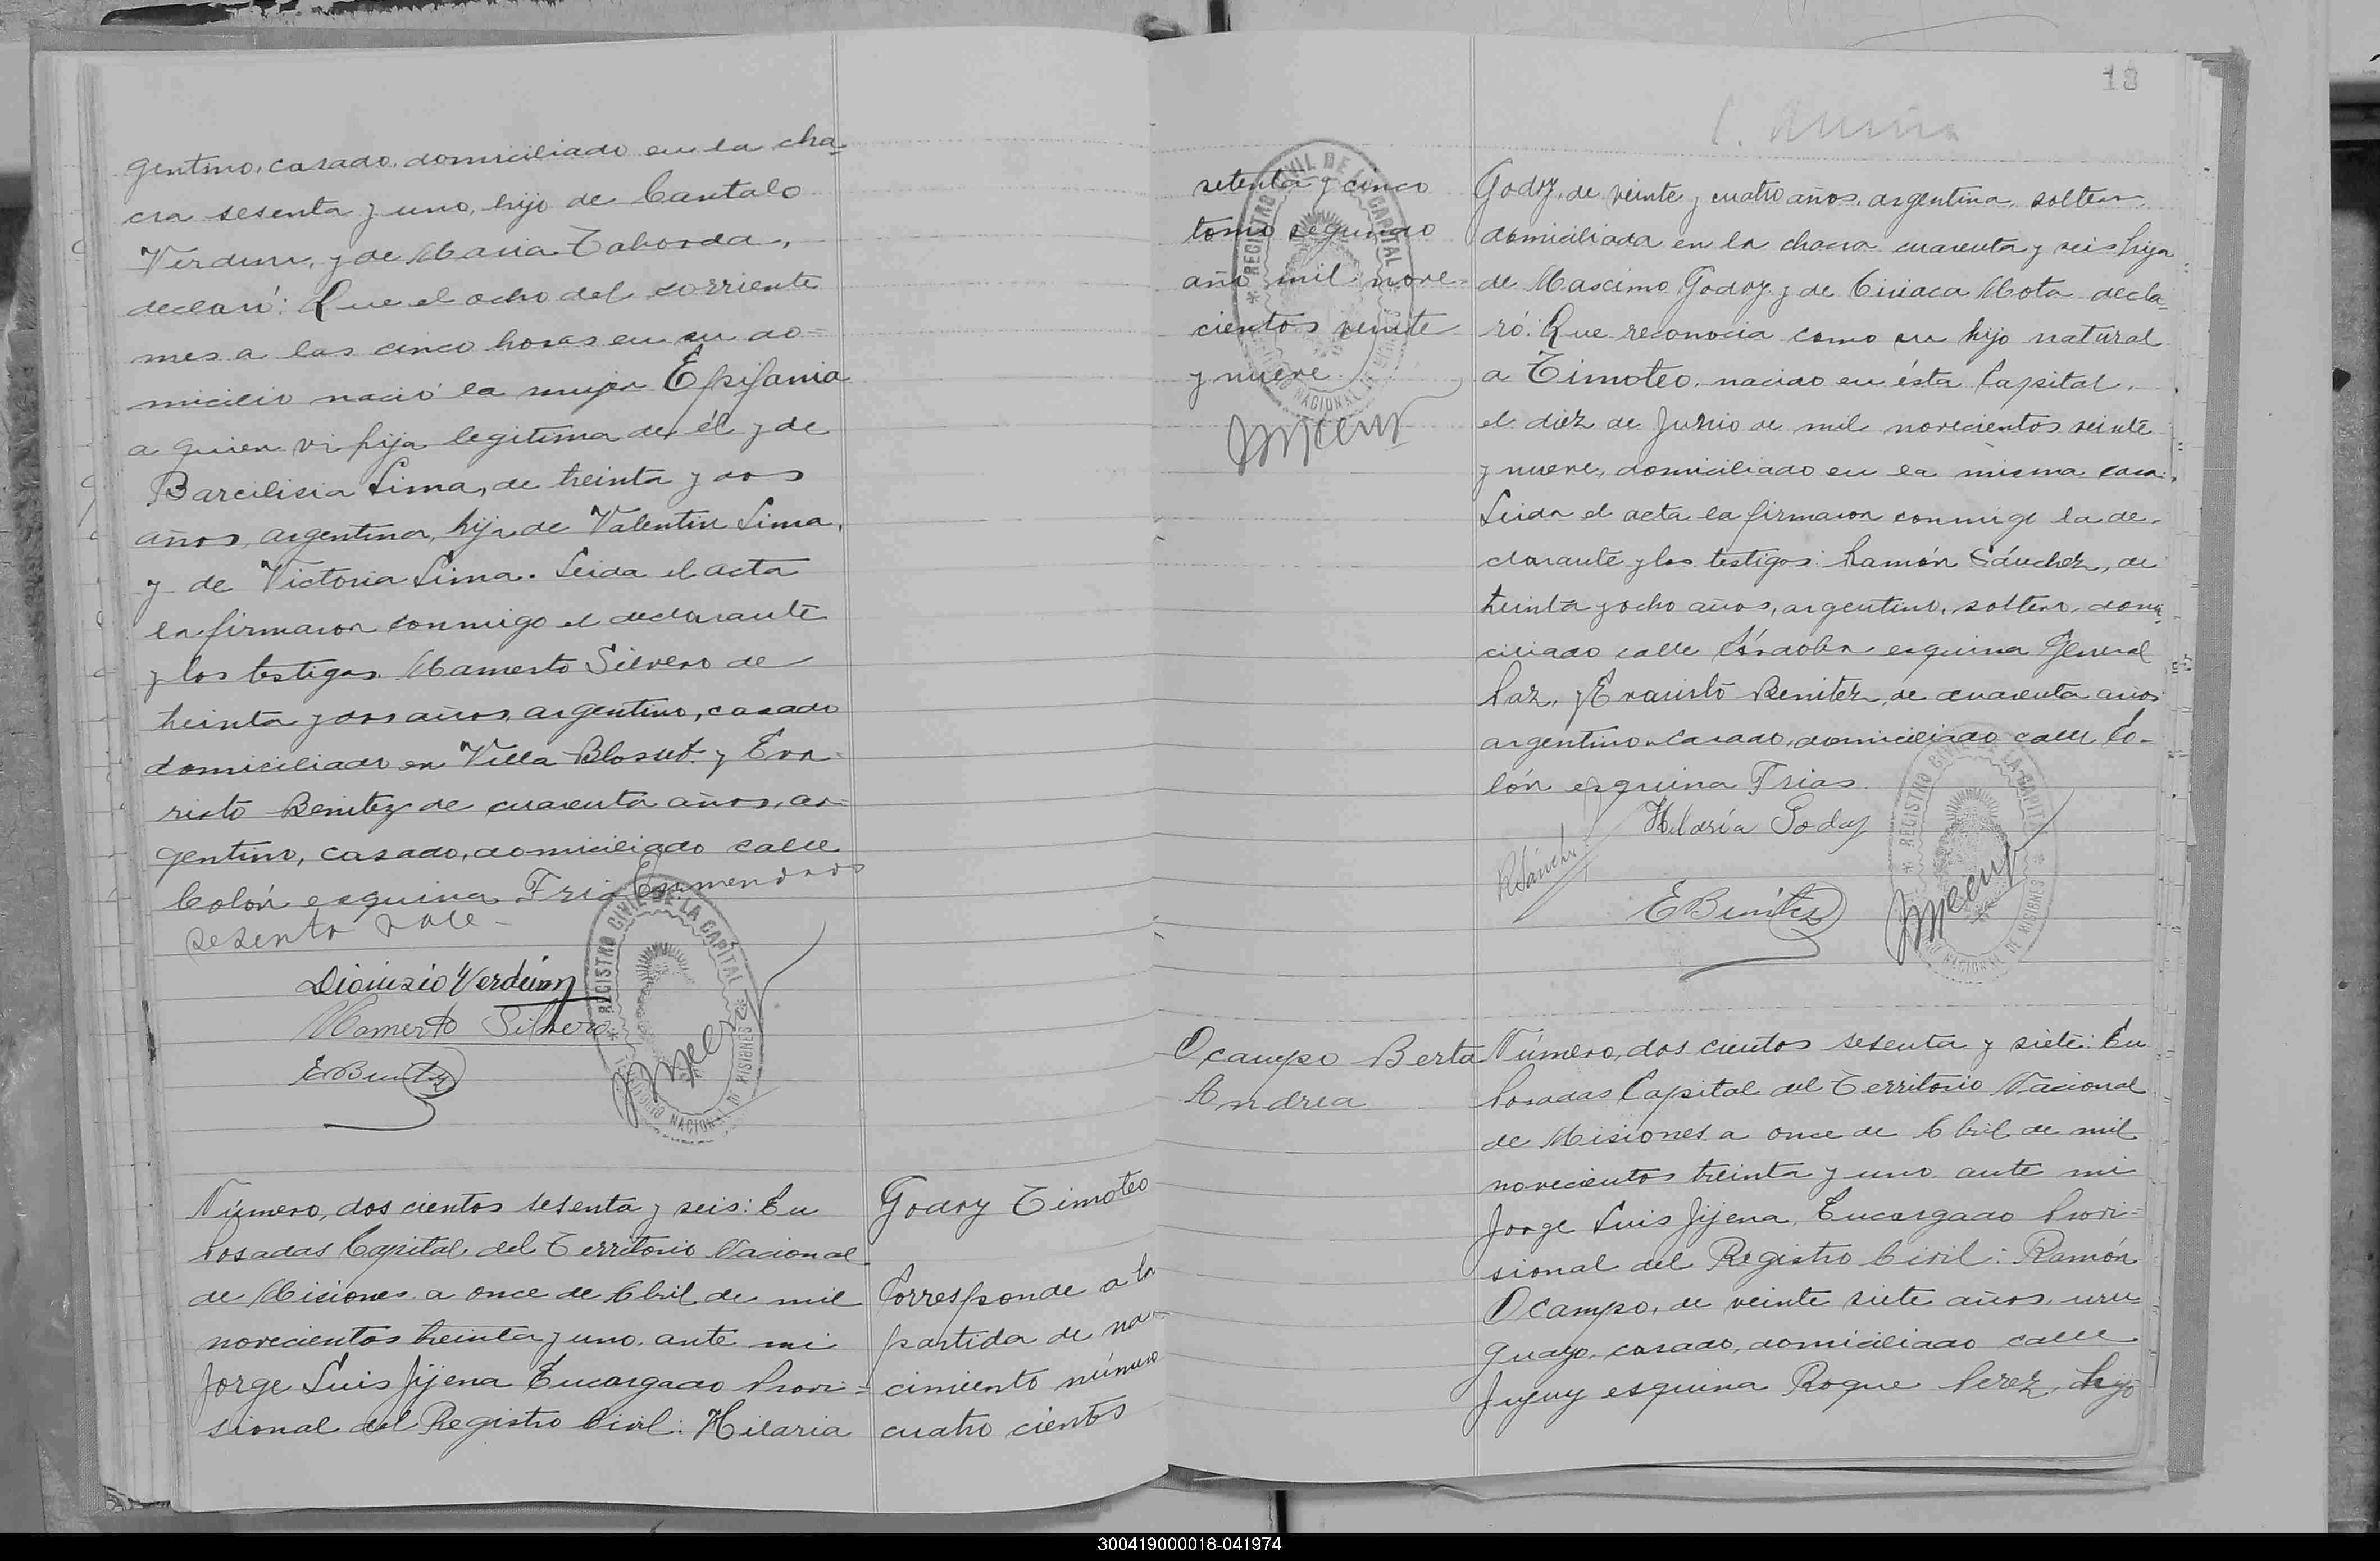 gentino, casado, domiciliado en la cha-
cra sesenta y uno, hijo de Cantalo
Verdun, y de Maria Taborda,
declaró: Que el ocho del corriente
mes a las cinco horas en su do=
micilio nació la mujer Epifania
a quien vi hija legitima de él y de
Barcilisia Lima, de treinta y dos
años, argentina, hija de Valentin Lima,
y de Victoria Lima. Leida el acta
la firmaron conmigo el declarante
y los testigos Mamerto Silvero de
treinta y dos años, argentino, casado
domiciliado en Villa Blosset y Eva=
risto Benitez de cuarenta años, ar=
gentino, casado, domiciliado calle
Colón esquina Frias Enmendado
sesenta vale -
Dionisio Verdun
Mamerto Silvero
E Benitez
REGISTRO CIVIL DE LA CAPITAL
TERRITORIO NACIONAL DE MISIONES
Número, dos cientos sesenta y seis: En
Posadas Capital del Territorio Nacional
de Misiones a once de Abril de mil
novecientos treinta y uno, ante mi
Jorge Luis Jijena Encargado Provi=
sional del Registro Civil: Hilaria
Godoy Timoteo
Corresponde a la
partida de na=
cimiento número
cuatro cientos
18
setenta y cinco
tomo segundo
año mil nove=
cientos veinte
y nueve
REGISTRO CIVIL DE LA CAPITAL
TERRITORIO NACIONAL DE MISIONES
Godoy, de veinte y cuatro años, argentina, soltera,
domiciliada en la chacra cuarenta y seis hija
de Mascimo Godoy y de Ciriaca Mota decla-
ró: Que reconocia como su hijo natural
a Timoteo, nacido en ésta Capital,
el diez de Junio de mil novecientos veinte
y nueve, domiciliado en la misma casa.
Leida el acta la firmaron conmigo la de-
clarante y los testigos: Ramón Sánchez, de
treinta y ocho años, argentino, soltero, domi-
ciliado calle Córdoba esquina General
Paz, y Evaristo Benitez, de cuarenta años
argentino casado, domiciliado calle Co-
lón esquina Frias.
Hilaria Godoy
R Sánchez
E Benitez
REGISTRO CIVIL DE LA CAPITAL
TERRITORIO NACIONAL DE MISIONES
Ocampo Berta
Andrea
Número, dos cientos sesenta y siete: En
Posadas Capital del Territorio Nacional
de Misiones a once de Abril de mil
novecientos treinta y uno ante mi
Jorge Luis Jijena, Encargado Provi=
sional del Registro Civil: Ramón
Ocampo, de veinte siete años, uru=
guayo, casado, domiciliado calle
Jujuy esquina Roque Perez, hijo
300419000018-041974